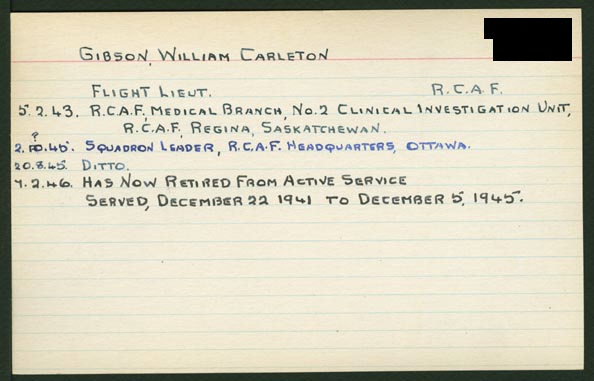 GIBSON, WILLIAM CARLETON
FLIGHT LIEUT. R.C.A.F.
5.2.43. R.C.A.F. MEDICAL BRANCH, NO.2 CLINICAL INVESTIGATION UNIT,
R.C.A.F. REGINA, SASKATCHEWAN.
?
2.10.45. SQUADRON LEADER, R.C.A.F. HEADQUARTERS, OTTAWA.
20.8.45. DITTO.
7.2.46. HAS NOW RETIRED FROM ACTIVE SERVICE
SERVED, DECEMBER 22 1941 TO DECEMBER 5, 1945.